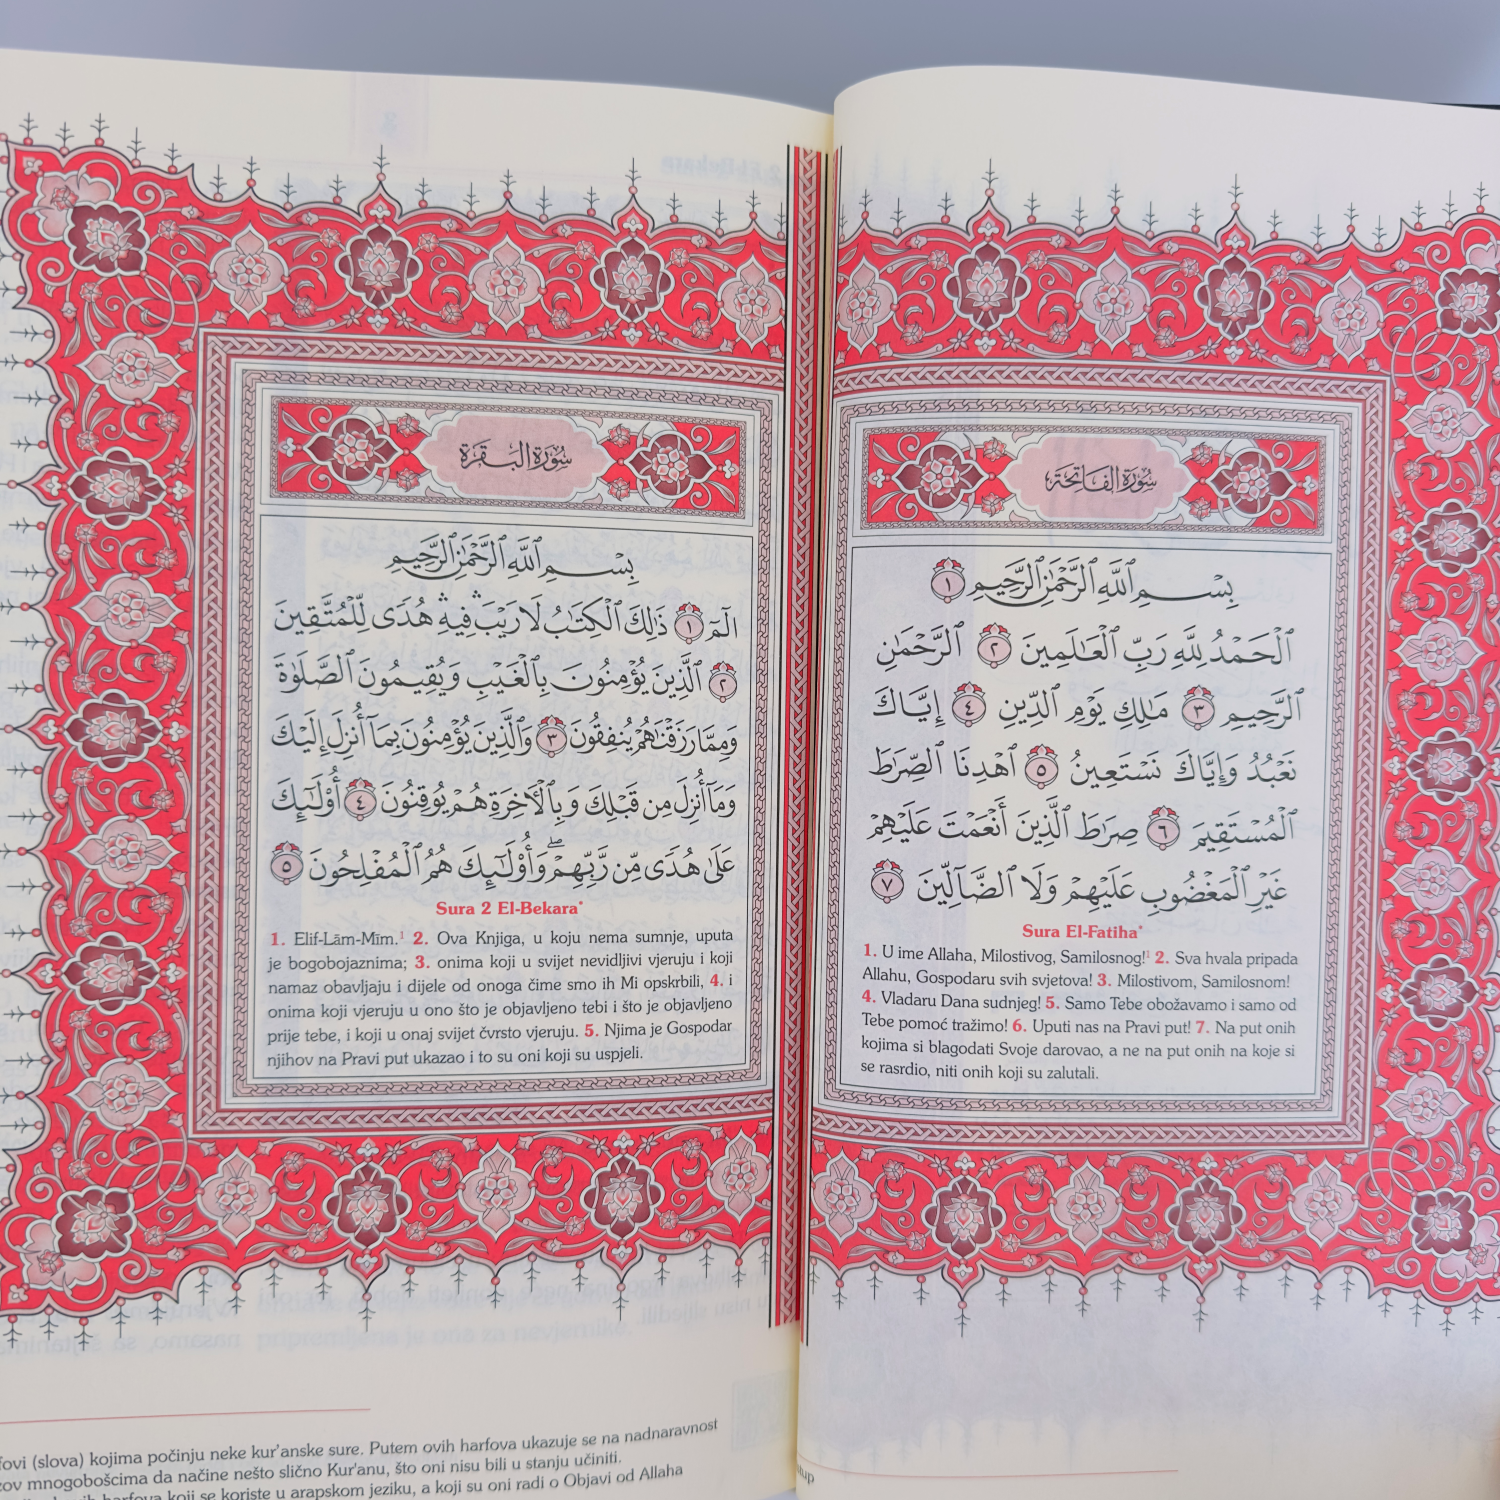 سُورَةُ الفَاتِحَةِ
بِسْمِ ٱللَّهِ ٱلرَّحْمَٰنِ ٱلرَّحِيمِ ١
ٱلْحَمْدُ لِلَّهِ رَبِّ ٱلْعَـٰلَمِينَ ٢ ٱلرَّحْمَـٰنِ
ٱلرَّحِيمِ ٣ مَـٰلِكِ يَوْمِ ٱلدِّينِ ٤ إِيَّاكَ
نَعْبُدُ وَإِيَّاكَ نَسْتَعِينُ ٥ ٱهْدِنَا ٱلصِّرَٰطَ
ٱلْمُسْتَقِيمَ ٦ صِرَٰطَ ٱلَّذِينَ أَنْعَمْتَ عَلَيْهِمْ
غَيْرِ ٱلْمَغْضُوبِ عَلَيْهِمْ وَلَا ٱلضَّآلِّينَ ٧
Sura El-Fatiha*
1. U ime Allaha, Milostivog, Samilosnog!¹ 2. Sva hvala pripada
Allahu, Gospodaru svih svjetova! 3. Milostivom, Samilosnom!
4. Vladaru Dana sudnjeg! 5. Samo Tebe obožavamo i samo od
Tebe pomoć tražimo! 6. Uputi nas na Pravi put! 7. Na put onih
kojima si blagodati Svoje darovao, a ne na put onih na koje si
se rasrdio, niti onih koji su zalutali.
سُورَةُ البَقَرَةِ
بِسْمِ ٱللَّهِ ٱلرَّحْمَٰنِ ٱلرَّحِيمِ
الٓمٓ ١ ذَٰلِكَ ٱلْكِتَـٰبُ لَا رَيْبَ ۛ فِيهِ ۛ هُدًى لِّلْمُتَّقِينَ
٢ ٱلَّذِينَ يُؤْمِنُونَ بِٱلْغَيْبِ وَيُقِيمُونَ ٱلصَّلَوٰةَ
وَمِمَّا رَزَقْنَـٰهُمْ يُنفِقُونَ ٣ وَٱلَّذِينَ يُؤْمِنُونَ بِمَآ أُنزِلَ إِلَيْكَ
وَمَآ أُنزِلَ مِن قَبْلِكَ وَبِٱلْـَٔاخِرَةِ هُمْ يُوقِنُونَ ٤ أُو۟لَـٰٓئِكَ
عَلَىٰ هُدًى مِّن رَّبِّهِمْ ۖ وَأُو۟لَـٰٓئِكَ هُمُ ٱلْمُفْلِحُونَ ٥
Sura 2 El-Bekara*
1. Elif-Lām-Mīm.¹ 2. Ova Knjiga, u koju nema sumnje, uputa
je bogobojaznima; 3. onima koji u svijet nevidljivi vjeruju i koji
namaz obavljaju i dijele od onoga čime smo ih Mi opskrbili, 4. i
onima koji vjeruju u ono što je objavljeno tebi i što je objavljeno
prije tebe, i koji u onaj svijet čvrsto vjeruju. 5. Njima je Gospodar
njihov na Pravi put ukazao i to su oni koji su uspjeli.
(slova) kojima počinju neke kur'anske sure. Putem ovih harfova ukazuje se na nadnaravnost
mnogobošcima da načine nešto slično Kur'anu, što oni nisu bili u stanju učiniti.
harfova koji se koriste u arapskom jeziku, a koji su oni radi o Objavi od Allaha